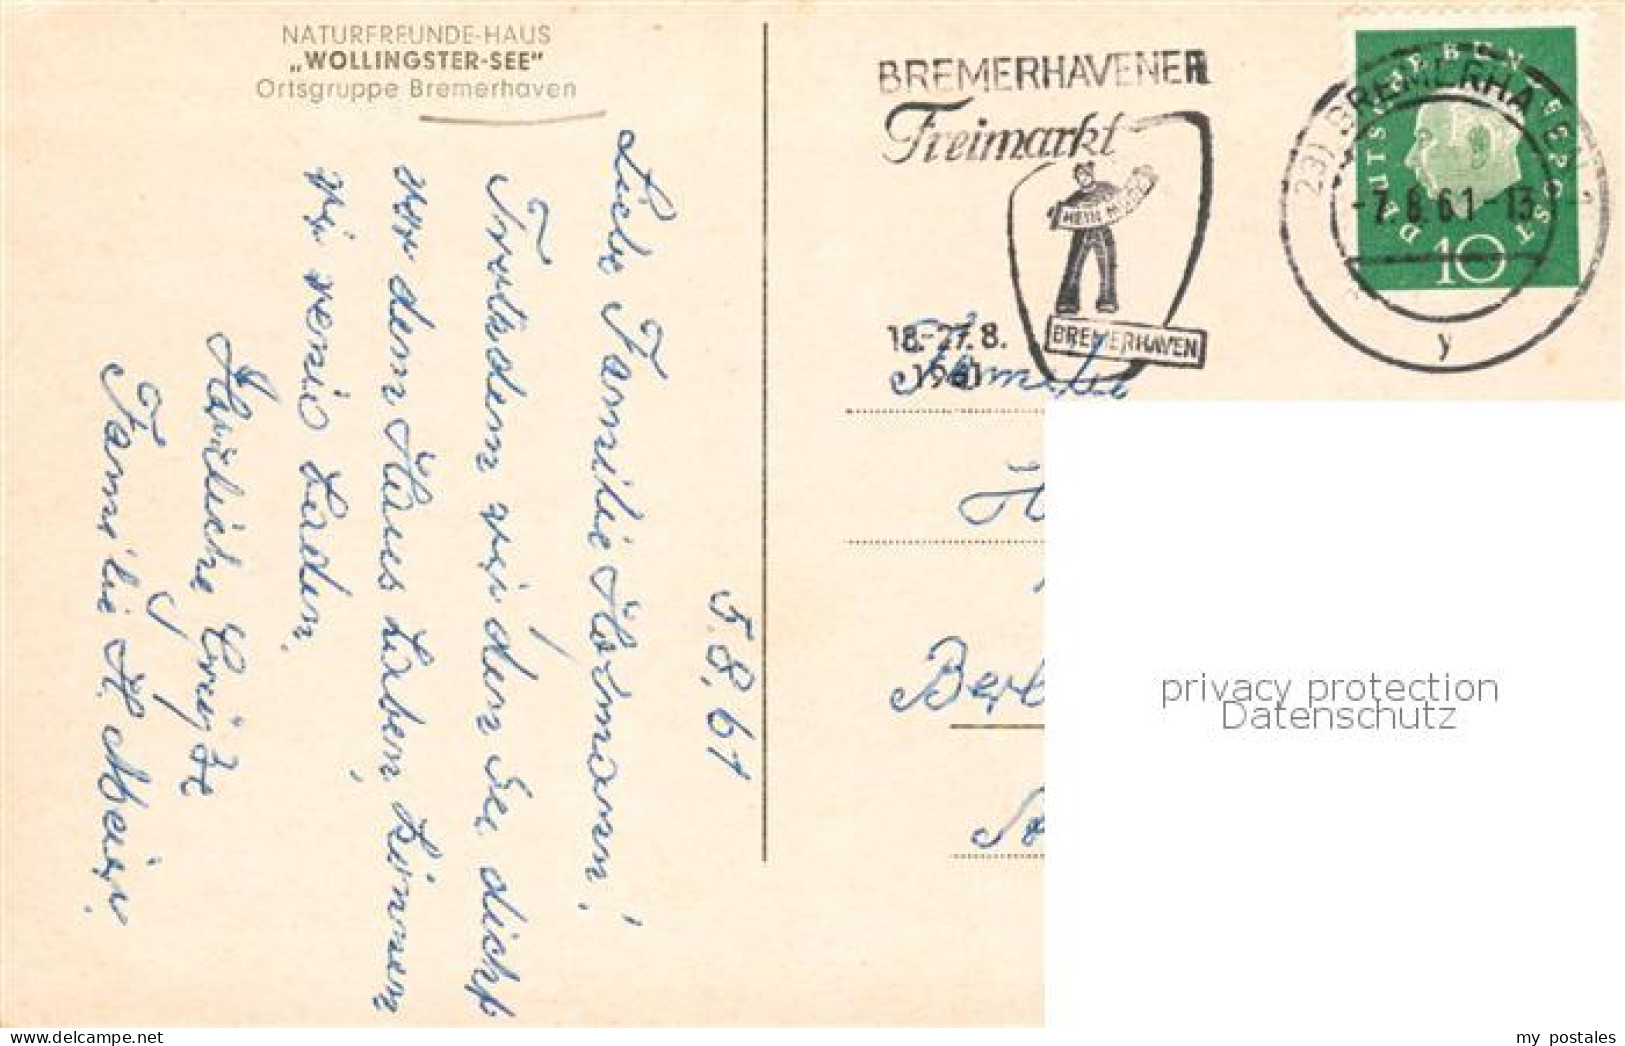 NATURFREUNDE-HAUS
„WOLLINGSTER-SEE“
Ortsgruppe Bremerhaven
5.8.61
Liebe Familie Hofmann!
Trotzdem wir den See dicht
vor dem Haus haben, können
wir wenig baden.
Herzliche Grüße
Familie H. Meier
BREMERHAVENER
Freimarkt
HEIN MÜCK
BREMERHAVEN
18.-27.8.
1961
(23) BREMERHAVEN 1
-7.8.61-13
y
DEUTSCHE BUNDESPOST
10
Familie
H
Berl
privacy protection
Datenschutz
my postales